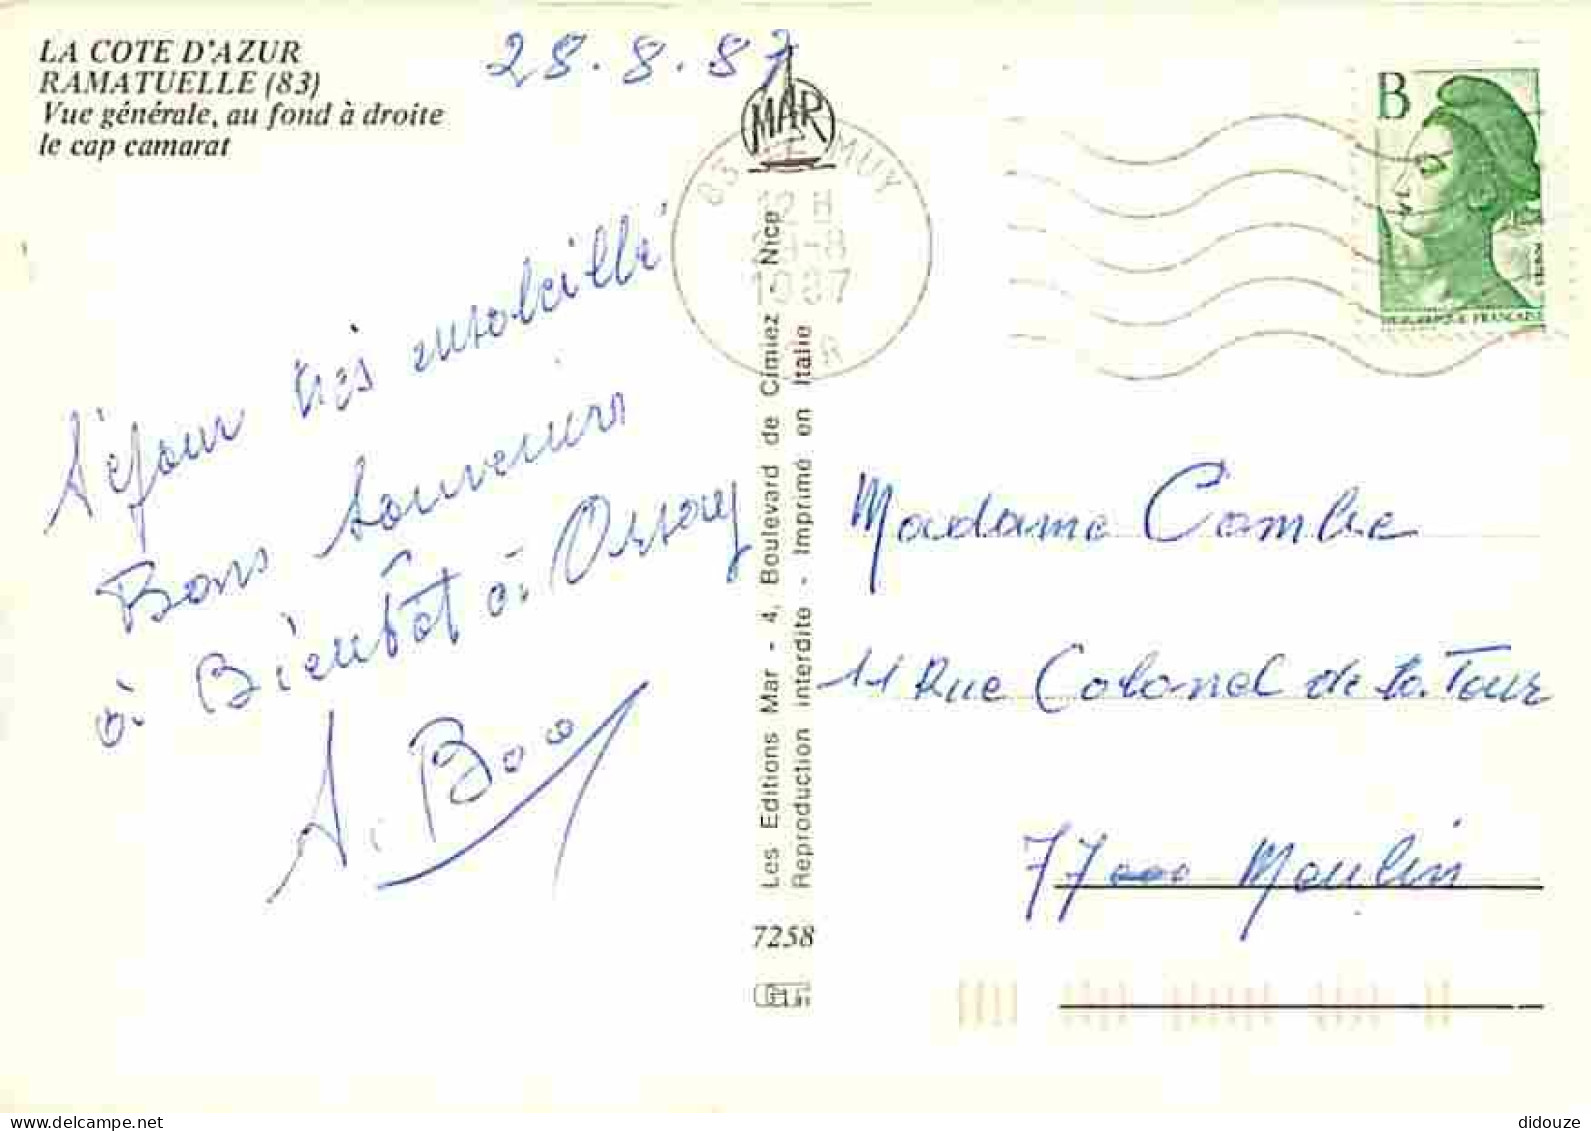 LA COTE D'AZUR
RAMATUELLE (83)
Vue générale, au fond à droite
le cap camarat
28.8.87
MAR
83 LE MUY
12 H
1987
B
REPUBLIQUE FRANÇAISE
Séjour très ensoleillé
Bons souvenirs
à Bientôt à Orsay
Les Editions Mar - 4, Boulevard de Cimiez - Nice
Reproduction interdite - Imprimé en Italie
7258
Madame Combe
11 Rue Colonel de la Tour
77000 Moulin
delcampe.net
didouze